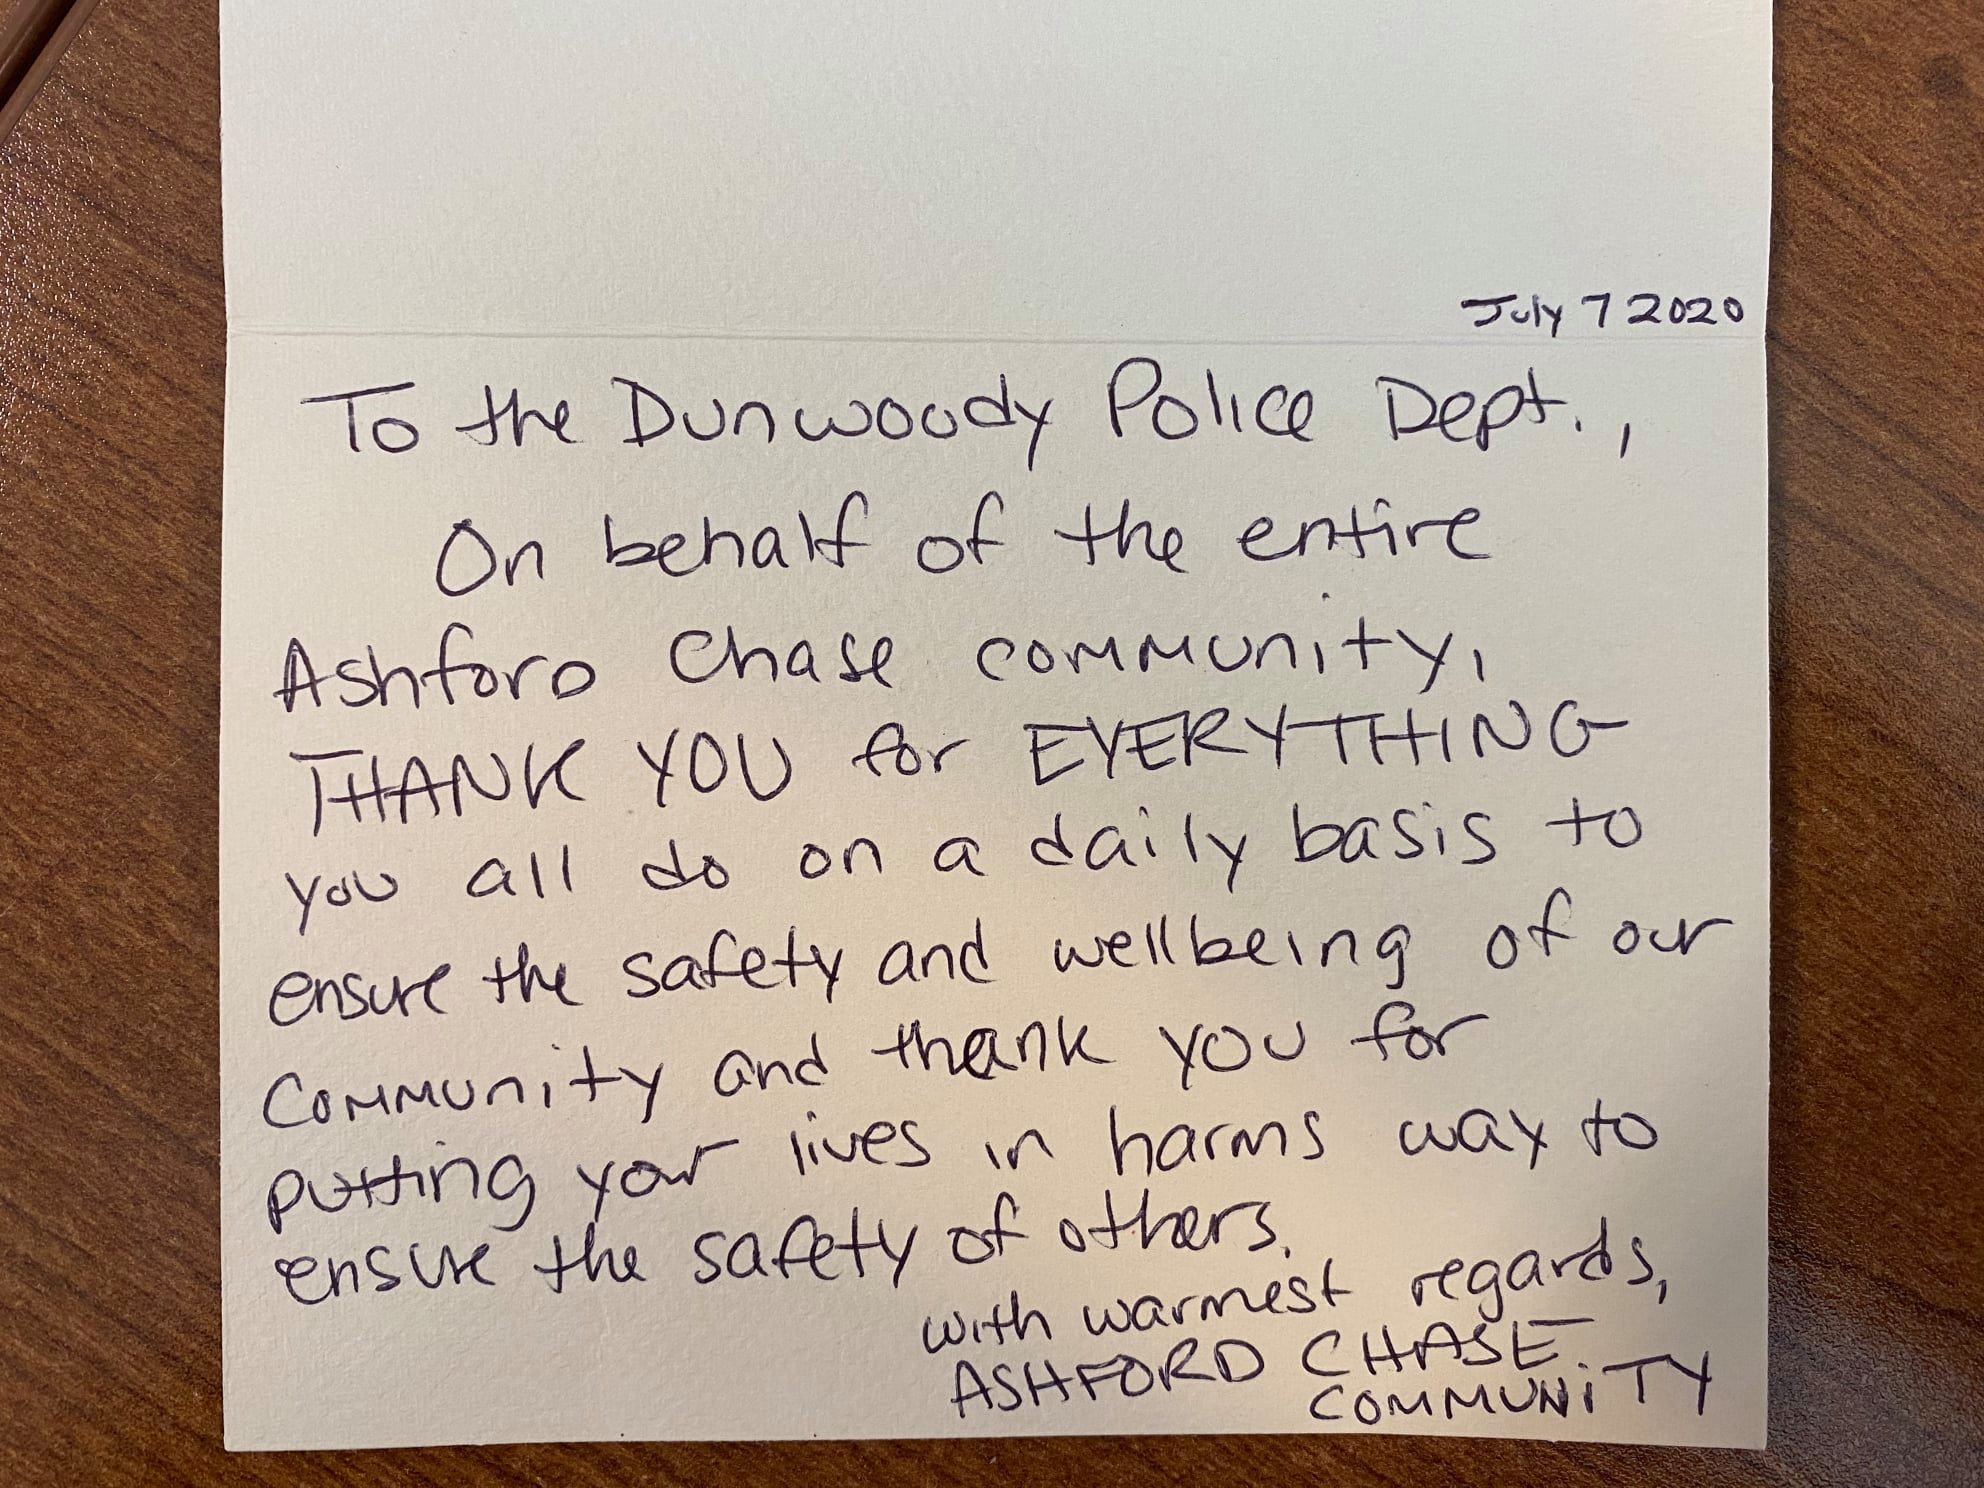 July 7 2020
To the Dunwoody Police Dept.,
On behalf of the entire
Ashford Chase community,
THANK YOU for EVERYTHING
you all do on a daily basis to
ensure the safety and wellbeing of our
community and thank you for
putting your lives in harms way to
ensure the safety of others.
with warmest regards,
ASHFORD CHASE
COMMUNiTY